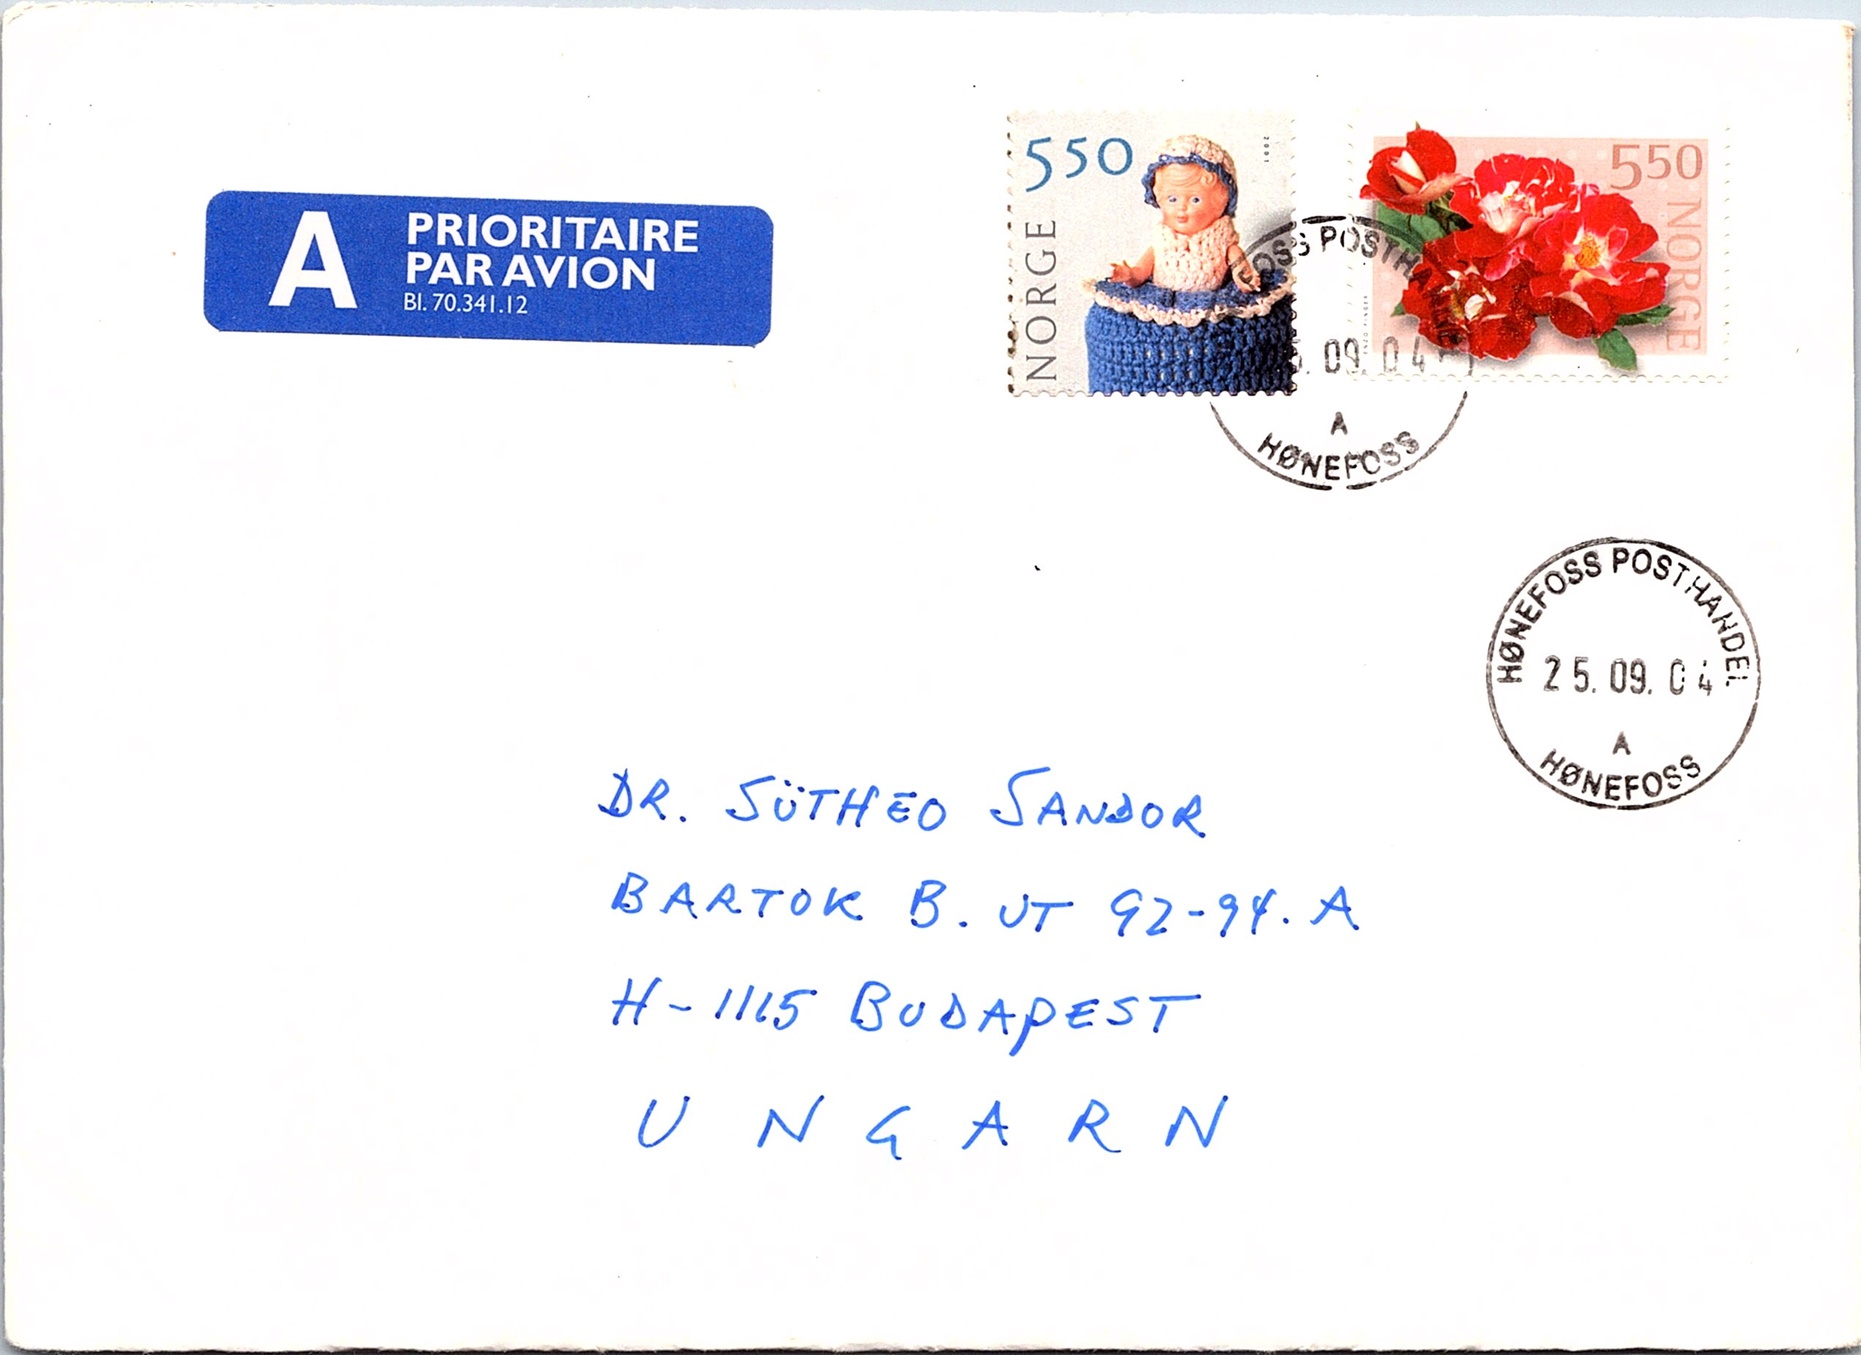 A PRIORITAIRE
PAR AVION
Bl. 70.341.12
550
NORGE
2001
550
NORGE
OSS POSTHA
. 09. 04
A
HØNEFOSS
HØNEFOSS POSTHANDEL
25. 09. 04
A
HØNEFOSS
DR. SÜTHEO SANDOR
BARTOK B. UT 92-94. A
H-1115 BUDAPEST
UNGARN